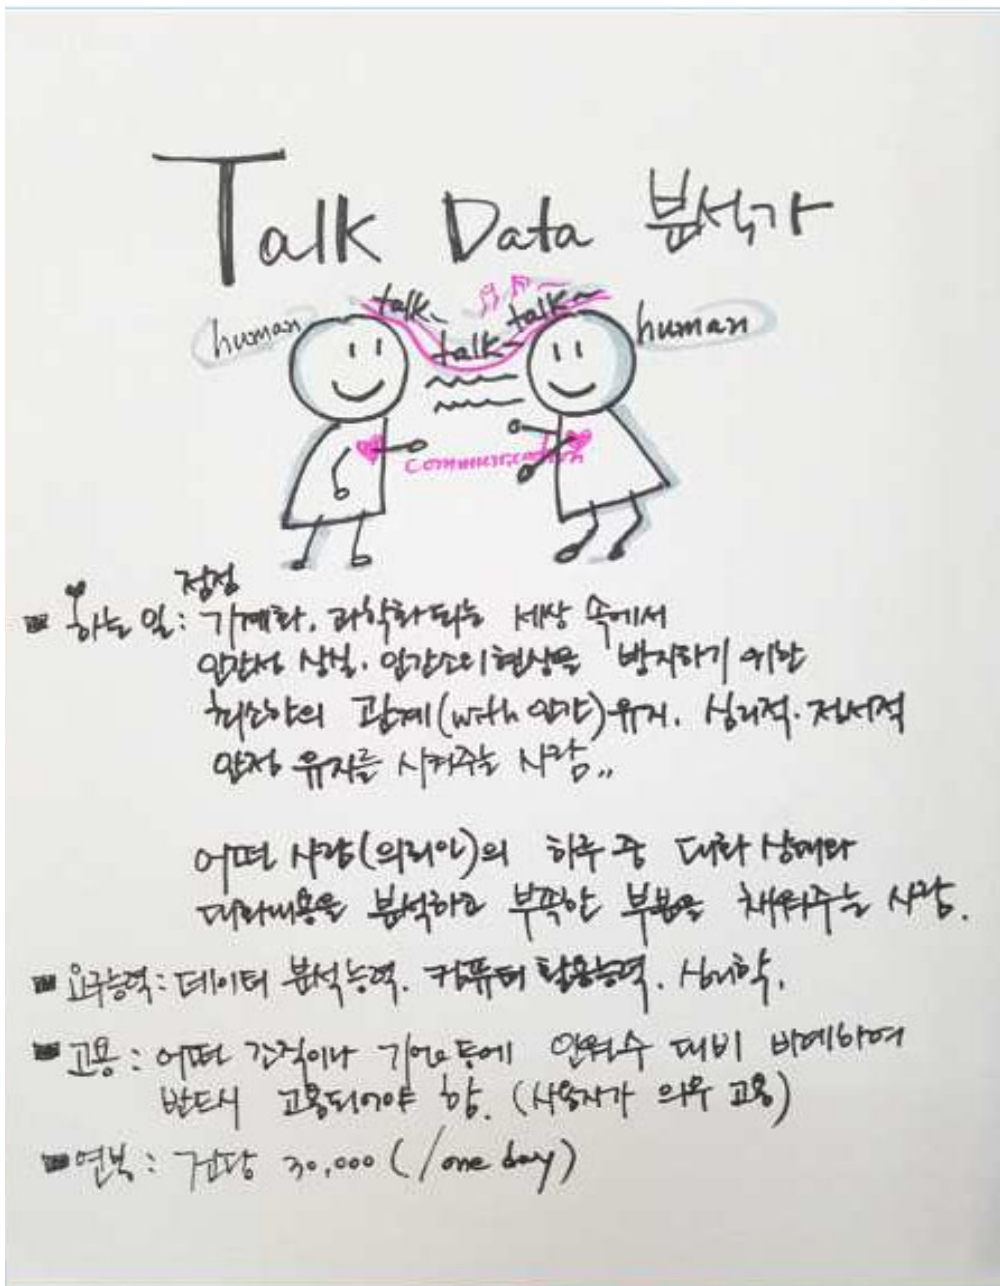 Talk Data 분석가
human
talk~
talk~
talk~
human
communication
점점
하는 일: 기계화. 과학화 되는 세상 속에서
인간성 상실. 인간소외현상을 방지하기 위한
최소한의 관계(with 인간)유지. 심리적. 정서적
안정 유지를 시켜주는 사람..
어떤 사람(의뢰인)의 하루 중 대화 상대와
대화내용을 분석하고 부족한 부분을 채워주는 사람.
요구능력: 데이터 분석능력. 컴퓨터 활용능력. 심리학.
고용: 어떤 조직이나 기업 등에 인원수 대비 비례하여
반드시 고용되어야 함. (사용자가 의무 고용)
연봉: 건당 30,000 (/one day)